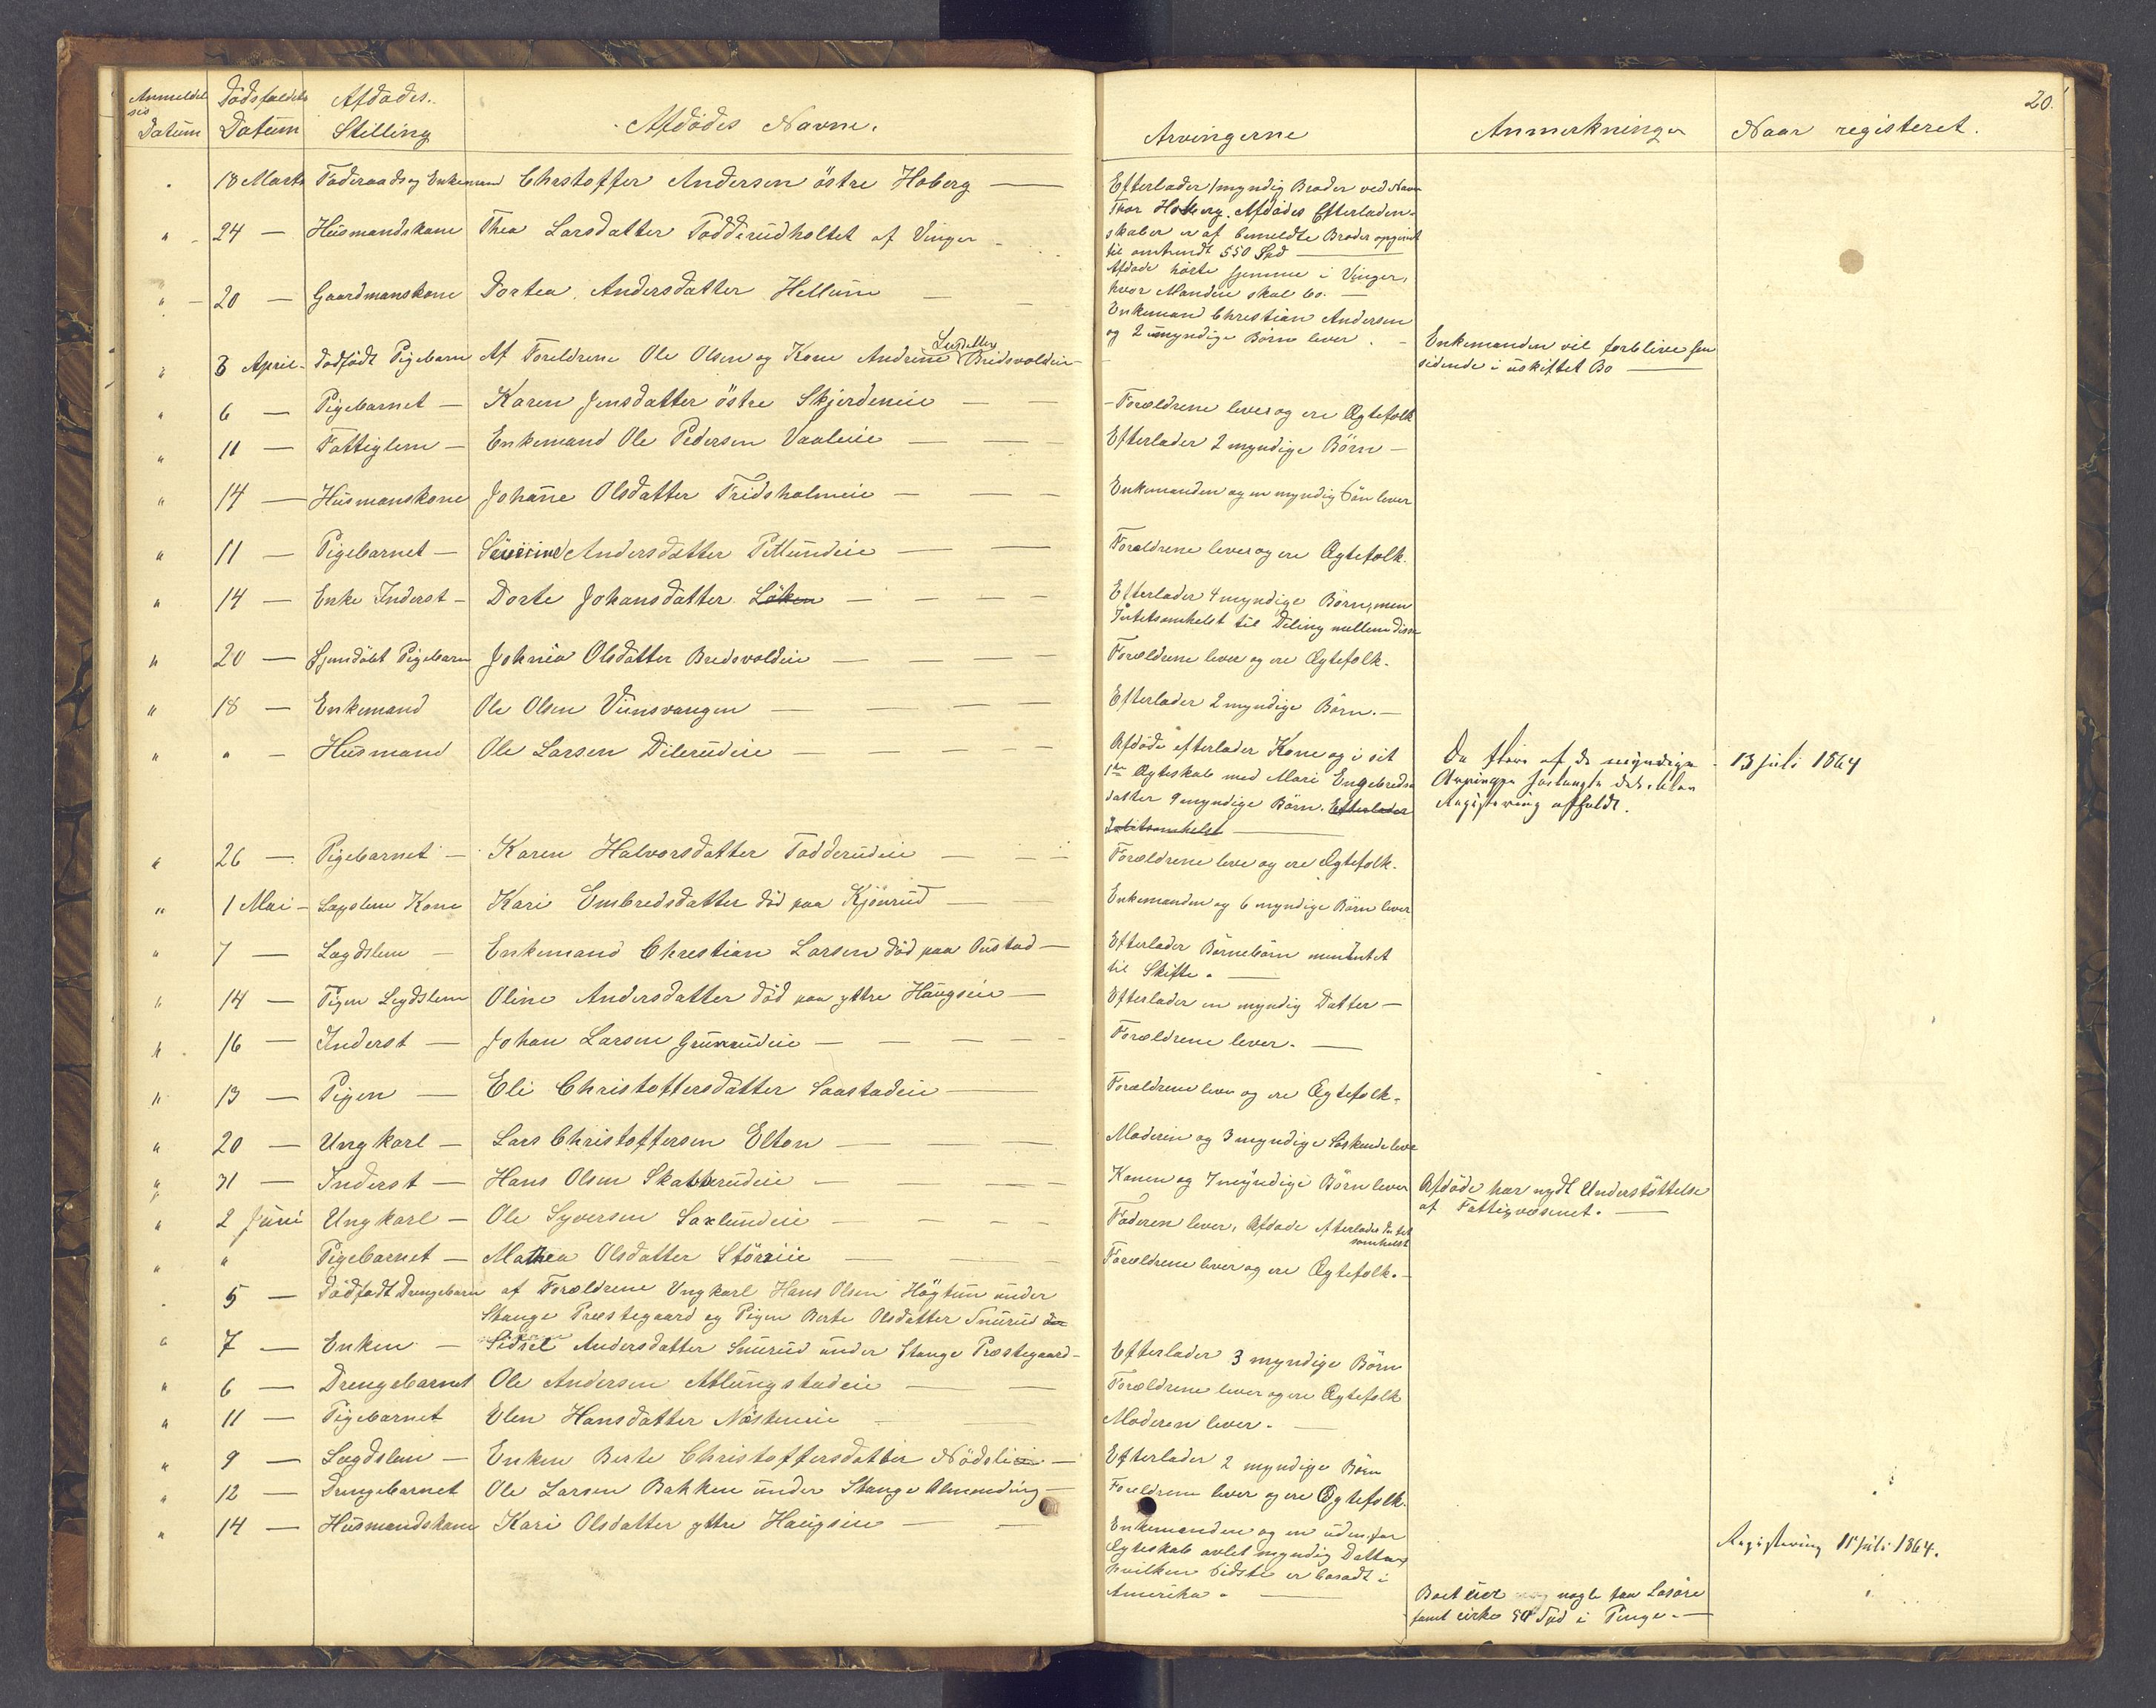 20.
Anmeldel
ses
Datum
Dödsfaldets
Datum
Afdödes
Stilling
Afdödes Navne.
Arvingerne
Anmerkninger
Naar registeret.
" 18 Marts Föderaads og Enkemand Chrstoffer Andersen östre Hoberg —
Efterlader 1 myndig Broder ved Navn
Thor Hoberg. Afdödes Efterladen-
skaber er af bemeldte Broder opgivet
til omtrendt 550 Spd —
" 24 — Husmandskone Thea Larsdatter Todderudholtet af Vinger —
Afdöde hörte hjemme i Vinger,
hvor Manden skal bo. —
" 20 — Gaardmanskone Dortea Andersdatter Hellum — —
Enkemand Christian Andersen
og 2 umyndige Börn lever. —
Enkemanden vil forblive hen
sidende i uskiftet Bo —
" 3 April — dödfödt Pigebarn Af Foreldrene Ole Olsen og Kone Andrine Bredsvoldeie —
" 6 — Pigebarnet — Karen Jensdatter östre Skjerdeneie — —
— Forældrene lever og ere Ægtefolk
" 11 — Fattiglem — Enkemand Ole Pedersen Vaaleie — —
Efterlader 2 myndige Börn —
" 14 — Husmanskone Johanne Olsdatter Fridsholmeie — — —
Enkemanden og en myndig Sön lever
" 11 — Pigebarnet — Andersdatter Petlundeie — —
Foreldrene lever og ere Ægtefolk.
" 14 — Enke Inderst — Dorte Johansdatter Löken — — — —
Efterlader 4 myndige Börn, men
Intetsomhelst til Deling mellem disse
" 20 — Hjemdöbt Pigebarn Johnia Olsdatter Bredsvoldeie — — — —
Forældrene lever og ere Ægtefolk.
" 18 — Enkemand Ole Olsen Viensvangen — — — —
Efterlader 2 myndige Börn. —
" " — Husmand Ole Larsen Dilerudeie — — — —
Afdöde efterlader Kone og i sit
1ste Ægteskab med Mari Engebreds
datter 9 myndige Börn. Efterlader
Intetsomhelst —
Da flere af de myndige
Arvinger forlangte det, blev
Registering afholdt.
13 Juli 1864
" 26 — Pigebarnet — Karen Halvorsdatter Todderudeie — — —
Forældrene leve og ere Ægtefolk.
" 1 Mai — Lægslem Kone Kari Embredsdatter död paa Kjönrud — —
Enkemanden og 6 myndige Börn lever
" 7 — Lægdslem — Enkemand Christian Larsen död paa Oustad —
Efterlader Börnebörn men Intet
til Skifte. —
" 14 — Pigen Legdslem Oline Andersdatter död paa yttre Haugseie —
Efterlader en myndig Datter —
" 16 — Inderst — Johan Larsen Grunerudeie — — — —
Forældrene lever. —
" 13 — Pigen — Eli Christoffersdatter Saastadeie — —
Forældrene leve og ere Ægtefolk.
" 20 — Ungkarl — Lars Christoffersen Elton — — —
Moderen og 3 myndige Söskende lever
" 31 — Inderst — Hans Olsen Skatterudeie — — — —
Konen og 7 myndige Börn lever
Afdöde har nydt Understöttelse
af Fattigvæsenet. —
" 2 Juni Ungkarl — Ole Syversen Saxlundeie — — — —
Faderen lever, Afdöde efterlader Intet
somhelst
" " Pigebarnet — Mathea Olsdatter Störeie — — —
Forældrene lever og ere Ægtefolk. —
" 5 — Dödfödt Drengebarn af Forældrene Ungkarl Hans Olsen Högtun under
Stange Præstegaard og Pigen Berte Olsdatter Snurud
" 7 — Enken — Sidsel Andersdatter Snurud under Stange Præstegaard —
Efterlader 3 myndige Börn
" 6 — Drengebarnet Ole Andersen Atlungstadeie — —
Forældrene lever og ere Ægtefolk
" 11 — Pigebarnet Elen Hansdatter Nöskeneie — —
Moderen lever. —
" 9 — Lægdslem — Enken Berte Christoffersdatter Nödslieie —
Efterlader 2 myndige Börn
" 12 — Drengebarnet Ole Larsen Bakken under Stange Almending —
Foreldrene lever og ere Ægtefolk.
" 14 — Husmandskone Kari Olsdatter yttre Haugseie — —
Enkemanden og en uden for
Ægteskab avlet myndig Datter
hvilken sidste er bosadt i
Amerika. —
Boet eier nogle faa Lösöre
samt cirka 50 Spd i Penge. —
Registering 15 Juli 1864.